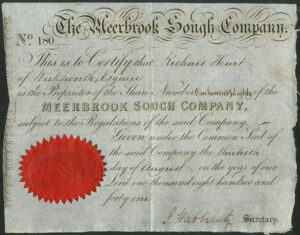 The Meerbrook Sough Company.
No 180
This is to Certify that Richard Hurt
of Wirksworth, Esquire
is the Proprietor of the Share Number One hund Eighty of the
MEERBROOK SOUGH COMPANY,
subject to the Regulations of the said Company.
Given under the Common Seal of
the said Company the thirtieth
day of August in the year of our
Lord one thousand eight hundred and
forty one.
Secretary.